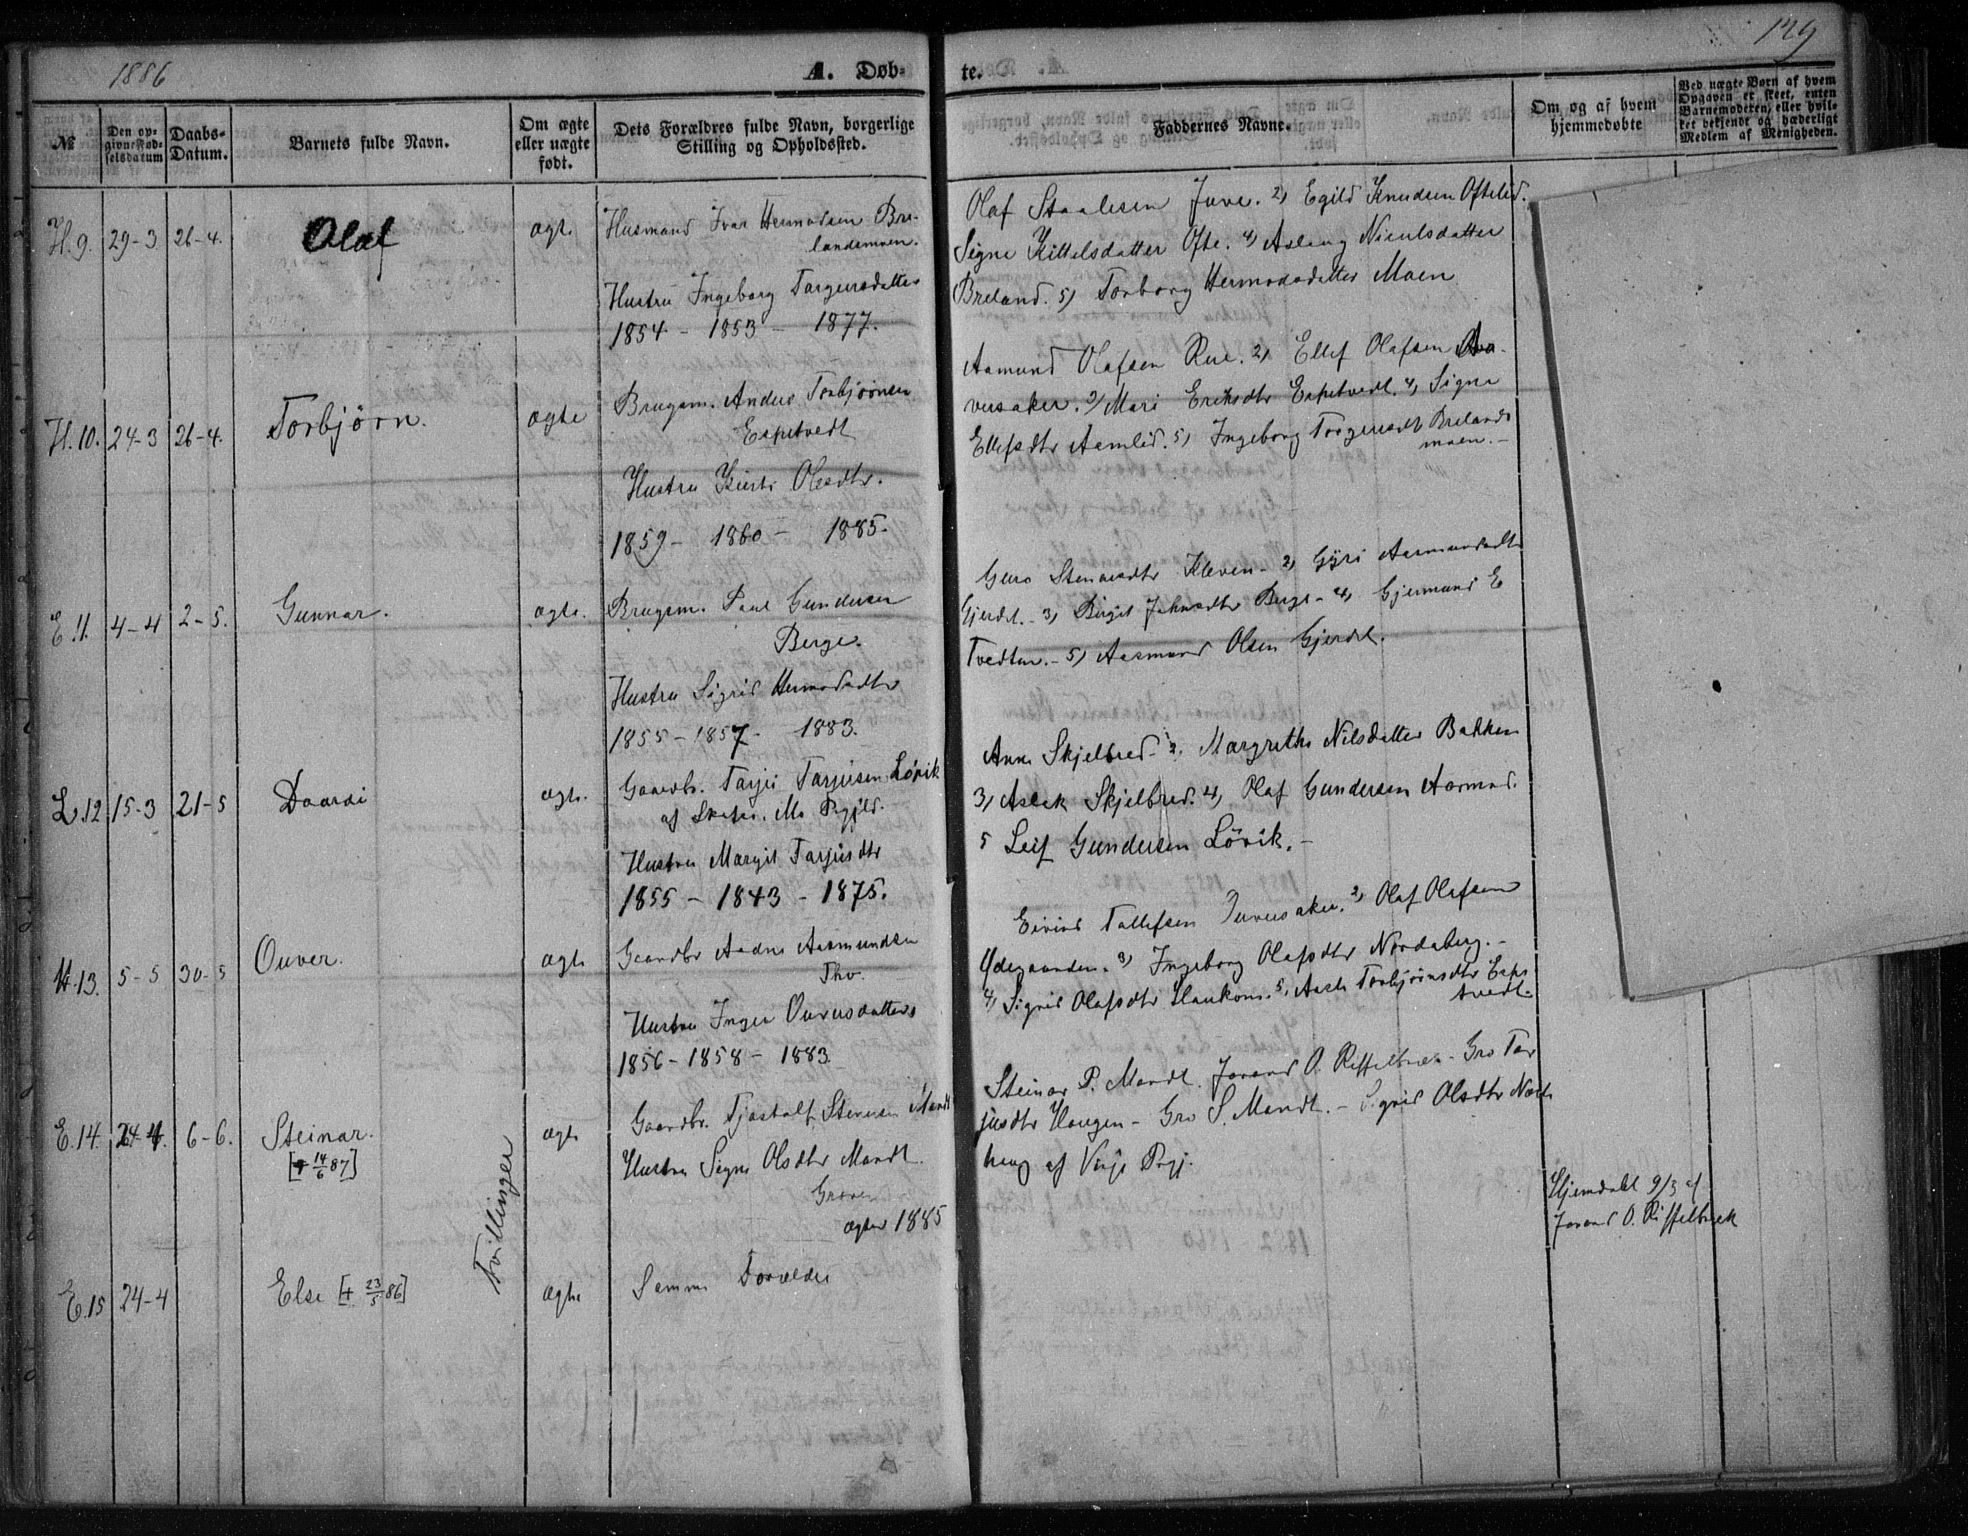 1886
A. Døb-
te.
129
№
Den op-
givne Fød-
selsdatum
Daabs-
Datum.
Barnets fulde Navn.
Om ægte
eller uægte
født.
Dets Forældres fulde Navn, borgerlige
Stilling og Opholdssted.
Faddernes Navne.
Om og af hvem
hjemmedøbte
Ved uægte Børn af hvem
Opgaven er skeet, enten
Barnemoderen, eller hvil-
ket bekjendt og hæderligt
Medlem af Menigheden.
H. 9. 29-3 26-4. Olaf ægte
Husmand Ivar Hermodsen Bre-
landsmoen.
Hustru Ingeborg Targeirsdatter
1854 - 1853 - 1877.
Olaf Staalesen Juve. 2) Egild Knudsen Oftelid.
Signe Kittelsdatter Ofte. 4) Aslaug Nieulsdatter
Breland. 5) Torborg Hermodsdatter Moen
H. 10. 24-3 26-4. Torbjørn. ægte
Brugsm. Anders Torbjørnsen
Espetvedt
Hustru Olsdtr.
1859 - 1860 - 1885.
Aamund Olafsen Rue. 2) Ellef Olafsen
vusaker. 3) Mari Eriksdtr Espetvedt. 4) Signe
Ellefsdtr Aamlid. 5) Ingeborg Torgeirsdt Brelands
moen. -
E. 11. 4-4 2-5. Gunnar. ægte.
Brugsm. Paul Gundersen
Berge.
Hustru Sigrid Hermodsdtr
1855 - 1857 - 1883.
Guro Kleven - 2) Gyri Aasmundsdtr
Gjerdet. - 3) Birgit Johnsdtr Berge - 4) Gjermund E
Tvedten. - 5) Aasmund Olsen Gjerdet.
L. 12 15-3 21-5 Daardi ægte.
Gaardbr. Tarjei Tarjeisen Lövik
af Skafse. Mo Prgjld.
Hustru Margit Tarjeisdtr
1855 - 1843 - 1875.
Anne Skjelbred - 2. Margrethe Nilsdatter Bakken
3) Aslak Skjelbred. 4) Olaf Gundersen
5 Leif Gundersen Lövik. -
H. 13. 5-5 30-5 Ouver. ægte
Gaardbr Aadne Aasmundsen
Tho.
Hustru Inger Ouversdatter
1856 - 1858 - 1883.
Eivind Tallefsen 2) Olaf Olafsen
Ødegaarden. 3) Ingeborg Olafsdtr Nordaberg. -
4) Sigrid Olafsdtr Haukom. 5) Aase Torbjørnsdtr Espe
tvedt.
E. 14. 24-4. 6-6. Steinar. ægte
[+ 14/6 87]
Tvillinger
Gaardbr. Tjostolf Steinersen Mandt
Hustru Signe Olsdtr Mandt.
Groven
ægtev 1885
Steinar P. Mandt. Jorand O. Riffelbræk - Gro Tar
jeisdtr Haugen - Gro S. Mandt. - Sigrid Olsdtr Nort
haug af Vinje Prgj.
Hjemdøbt 9/5 af
Jorand O. Riffelbræk
E. 15 24-4 Else [+ 23/5 86] ægte
Samme Forældre